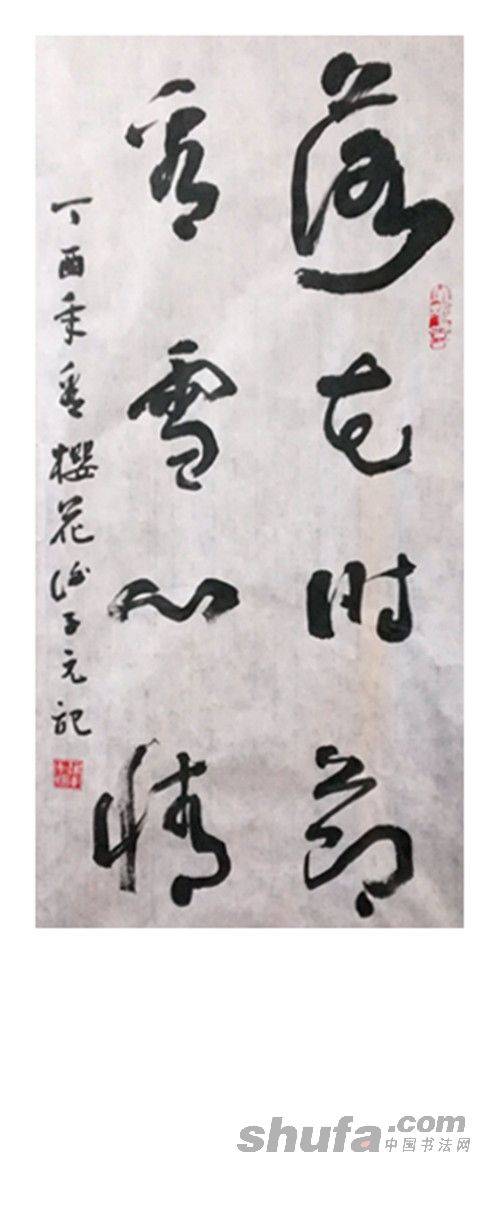 落花时节
看雪心情
丁酉年看櫻花子元記
shufa.com
中国书法网